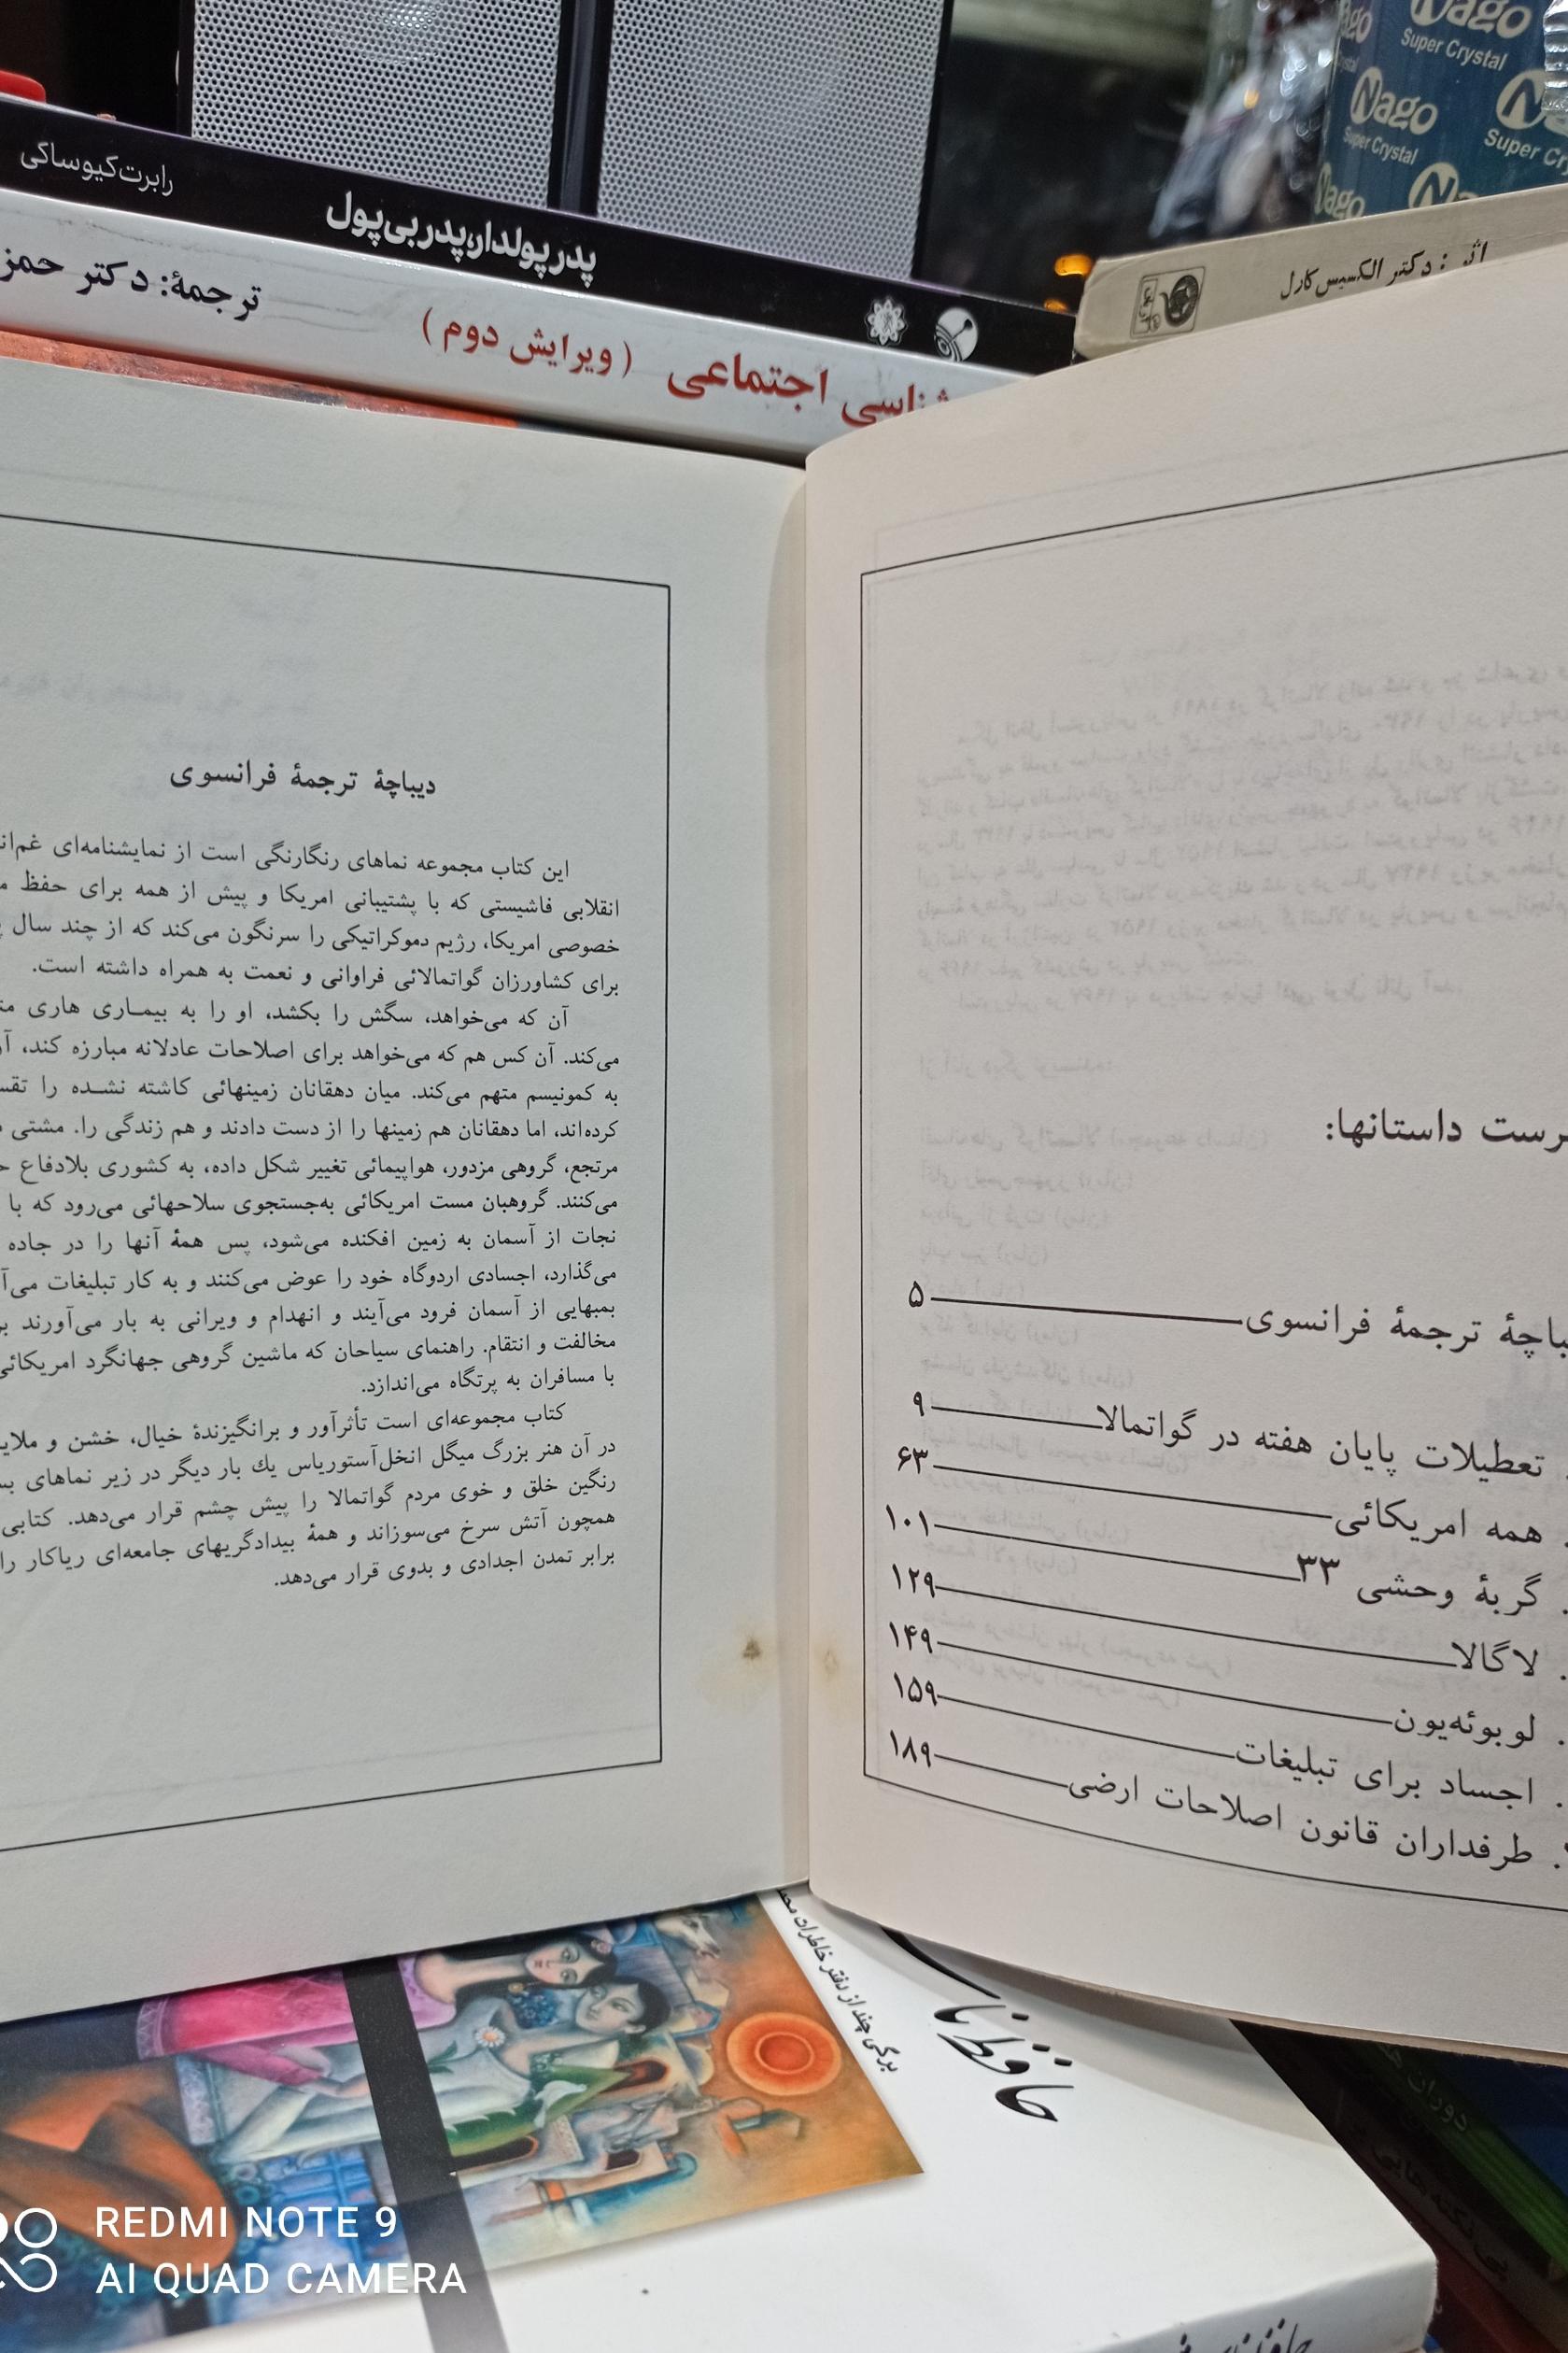 Nago
Super Crystal
Nago
Super Crystal
Nago
رابرت کیوساکی
پدر پولدار، پدر بی‌پول
ترجمهٔ: دکتر
اجتماعی (ویرایش دوم)
اثر: دکتر الکسیس کارل
داستانها:
ترجمهٔ فرانسوی ۵
تعطیلات پایان هفته در گواتمالا ۹
همه امریکائی ۶۳
گربهٔ وحشی ۳۳ ۱۰۱
لاگالا ۱۲۹
لوبوئه‌یون ۱۴۹
اجساد برای تبلیغات ۱۵۹
طرفداران قانون اصلاحات ارضی ۱۸۹
دیباچهٔ ترجمهٔ فرانسوی
این کتاب مجموعه نماهای رنگارنگی است از نمایشنامه‌ای
انقلابی فاشیستی که با پشتیبانی امریکا و پیش از همه برای حفظ
خصوصی امریکا، رژیم دموکراتیکی را سرنگون می‌کند که از چند سال
برای کشاورزان گواتمالائی فراوانی و نعمت به همراه داشته است.
آن که می‌خواهد، سگش را بکشد، او را به بیماری هاری
می‌کند. آن کس هم که می‌خواهد برای اصلاحات عادلانه مبارزه کند،
به کمونیسم متهم می‌کند. میان دهقانان زمینهائی کاشته نشده را
کرده‌اند، اما دهقانان هم زمینها را از دست دادند و هم زندگی را. مشتی
مرتجع، گروهی مزدور، هواپیمائی تغییر شکل داده، به کشوری بلادفاع
می‌کنند. گروهبان مست امریکائی به‌جستجوی سلاحهائی می‌رود که با
نجات از آسمان به زمین افکنده می‌شود، پس همهٔ آنها را در جاده
می‌گذارد، اجسادی اردوگاه خود را عوض می‌کنند و به کار تبلیغات
بمبهایی از آسمان فرود می‌آیند و انهدام و ویرانی به بار می‌آورند
مخالفت و انتقام. راهنمای سیاحان که ماشین گروهی جهانگرد امریکائی
با مسافران به پرتگاه می‌اندازد.
کتاب مجموعه‌ای است تأثرآور و برانگیزندهٔ خیال، خشن و
در آن هنر بزرگ میگل انخل‌آستوریاس یك بار دیگر در زیر نماهای
رنگین خلق و خوی مردم گواتمالا را پیش چشم قرار می‌دهد. کتابی
همچون آتش سرخ می‌سوزاند و همهٔ بیدادگریهای جامعه‌ای ریاکار را
برابر تمدن اجدادی و بدوی قرار می‌دهد.
برگی چند از دفتر خاطرات
دوران
REDMI NOTE 9
AI QUAD CAMERA